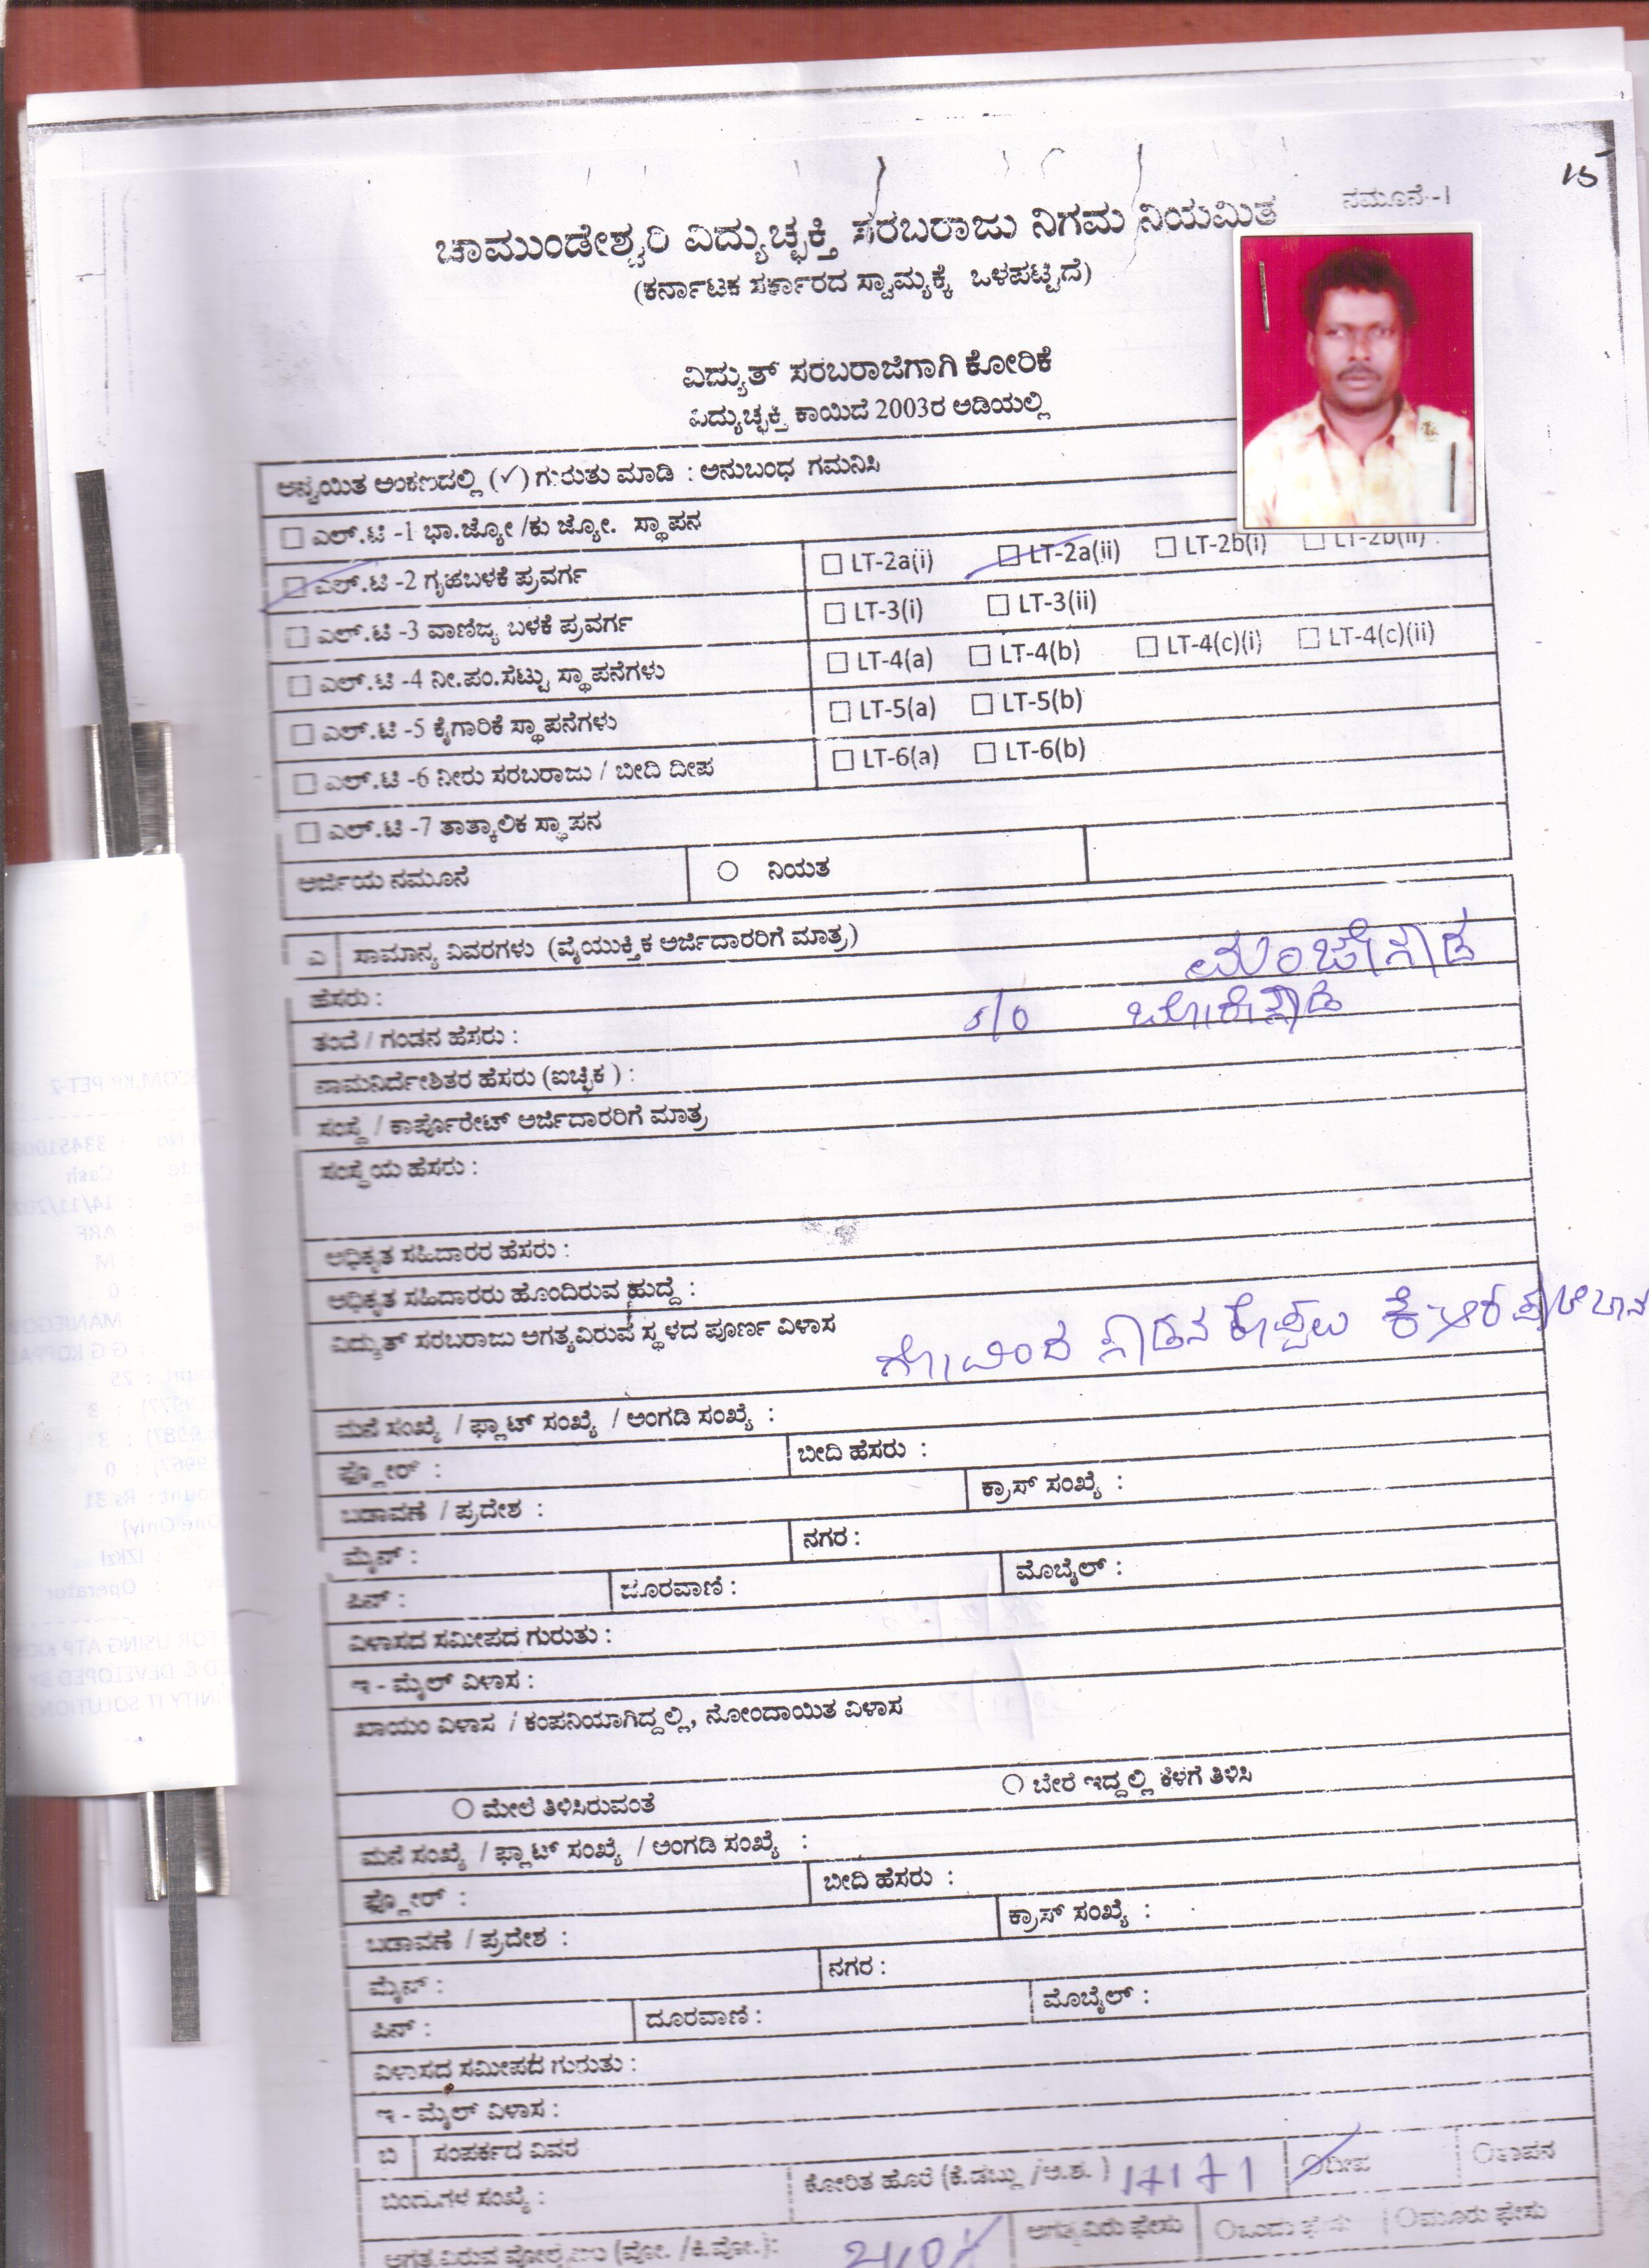 15
ನಮೂನೆ-I
ಚಾಮುಂಡೇಶ್ವರಿ ವಿದ್ಯುಚ್ಛಕ್ತಿ ಸರಬರಾಜು ನಿಗಮ ನಿಯಮಿತ
(ಕರ್ನಾಟಕ ಸರ್ಕಾರದ ಸ್ವಾಮ್ಯಕ್ಕೆ ಒಳಪಟ್ಟಿದೆ)
ವಿದ್ಯುತ್ ಸರಬರಾಜಿಗಾಗಿ ಕೋರಿಕೆ
ವಿದ್ಯುಚ್ಛಕ್ತಿ ಕಾಯಿದೆ 2003ರ ಅಡಿಯಲ್ಲಿ
ಅನ್ವಯಿತ ಅಂಕಣದಲ್ಲಿ (✓) ಗುರುತು ಮಾಡಿ : ಅನುಬಂಧ ಗಮನಿಸಿ
☐ ಎಲ್.ಟಿ -1 ಭಾ.ಜ್ಯೋ /ಕು ಜ್ಯೋ. ಸ್ಥಾಪನ
☐ ಎಲ್.ಟಿ -2 ಗೃಹಬಳಕೆ ಪ್ರವರ್ಗ ☐ LT-2a(i) ☐ LT-2a(ii) ☐ LT-2b(i) ☐ LT-2b(ii)
☐ ಎಲ್.ಟಿ -3 ವಾಣಿಜ್ಯ ಬಳಕೆ ಪ್ರವರ್ಗ ☐ LT-3(i) ☐ LT-3(ii)
☐ ಎಲ್.ಟಿ -4 ನೀ.ಪಂ.ಸೆಟ್ಟು ಸ್ಥಾಪನೆಗಳು ☐ LT-4(a) ☐ LT-4(b) ☐ LT-4(c)(i) ☐ LT-4(c)(ii)
☐ ಎಲ್.ಟಿ -5 ಕೈಗಾರಿಕೆ ಸ್ಥಾಪನೆಗಳು ☐ LT-5(a) ☐ LT-5(b)
☐ ಎಲ್.ಟಿ -6 ನೀರು ಸರಬರಾಜು / ಬೀದಿ ದೀಪ ☐ LT-6(a) ☐ LT-6(b)
☐ ಎಲ್.ಟಿ -7 ತಾತ್ಕಾಲಿಕ ಸ್ಥಾಪನ
ಅರ್ಜಿಯ ನಮೂನೆ ○ ನಿಯತ
ಎ ಸಾಮಾನ್ಯ ವಿವರಗಳು (ವೈಯುಕ್ತಿಕ ಅರ್ಜಿದಾರರಿಗೆ ಮಾತ್ರ)
ಹೆಸರು : ಮಂಜೇಗೌಡ
ತಂದೆ / ಗಂಡನ ಹೆಸರು : s/o
ನಾಮನಿರ್ದೇಶಿತರ ಹೆಸರು (ಐಚ್ಛಿಕ ) :
ಸಂಸ್ಥೆ / ಕಾರ್ಪೊರೇಟ್ ಅರ್ಜಿದಾರರಿಗೆ ಮಾತ್ರ
ಸಂಸ್ಥೆಯ ಹೆಸರು :
ಅಧಿಕೃತ ಸಹಿದಾರರ ಹೆಸರು :
ಅಧಿಕೃತ ಸಹಿದಾರರು ಹೊಂದಿರುವ ಹುದ್ದೆ :
ವಿದ್ಯುತ್ ಸರಬರಾಜು ಅಗತ್ಯವಿರುವ ಸ್ಥಳದ ಪೂರ್ಣ ವಿಳಾಸ
ಗೋವಿಂದ ಗೌಡನ ಕೊಪ್ಪಲು ಕೆ ಆರ್
ಮನೆ ಸಂಖ್ಯೆ / ಫ್ಲಾಟ್ ಸಂಖ್ಯೆ / ಅಂಗಡಿ ಸಂಖ್ಯೆ :
ಫ್ಲೋರ್ : ಬೀದಿ ಹೆಸರು :
ಬಡಾವಣೆ / ಪ್ರದೇಶ : ಕ್ರಾಸ್ ಸಂಖ್ಯೆ :
ಮೈನ್ : ನಗರ :
ಪಿನ್ : ದೂರವಾಣಿ : ಮೊಬೈಲ್ :
ವಿಳಾಸದ ಸಮೀಪದ ಗುರುತು :
ಇ - ಮೈಲ್ ವಿಳಾಸ :
ಖಾಯಂ ವಿಳಾಸ / ಕಂಪನಿಯಾಗಿದ್ದಲ್ಲಿ, ನೋಂದಾಯಿತ ವಿಳಾಸ
○ ಮೇಲೆ ತಿಳಿಸಿರುವಂತೆ ○ ಬೇರೆ ಇದ್ದಲ್ಲಿ ಕೆಳಗೆ ತಿಳಿಸಿ
ಮನೆ ಸಂಖ್ಯೆ / ಫ್ಲಾಟ್ ಸಂಖ್ಯೆ / ಅಂಗಡಿ ಸಂಖ್ಯೆ :
ಫ್ಲೋರ್ : ಬೀದಿ ಹೆಸರು :
ಬಡಾವಣೆ / ಪ್ರದೇಶ : ಕ್ರಾಸ್ ಸಂಖ್ಯೆ :
ಮೈನ್ : ನಗರ :
ಪಿನ್ : ದೂರವಾಣಿ : ಮೊಬೈಲ್ :
ವಿಳಾಸದ ಸಮೀಪದ ಗುರುತು :
ಇ - ಮೈಲ್ ವಿಳಾಸ :
ಬಿ ಸಂಪರ್ಕದ ವಿವರ
ಬಿಂದುಗಳ ಸಂಖ್ಯೆ : ಕೋರಿತ ಹೊರೆ (ಕೆ.ಡಬ್ಲು /ಅ.ಶ. ) ○ದೀಪ ○ತಾಪನ
ಅಗತ್ಯವಿರುವ ವೋಲ್ಟೇಜು (ವೋ. /ಕಿ.ವೋ.): ಅಗತ್ಯವಿರು ಫೇಸು ○ಒಂದು ಫೇಸು ○ಮೂರು ಫೇಸು